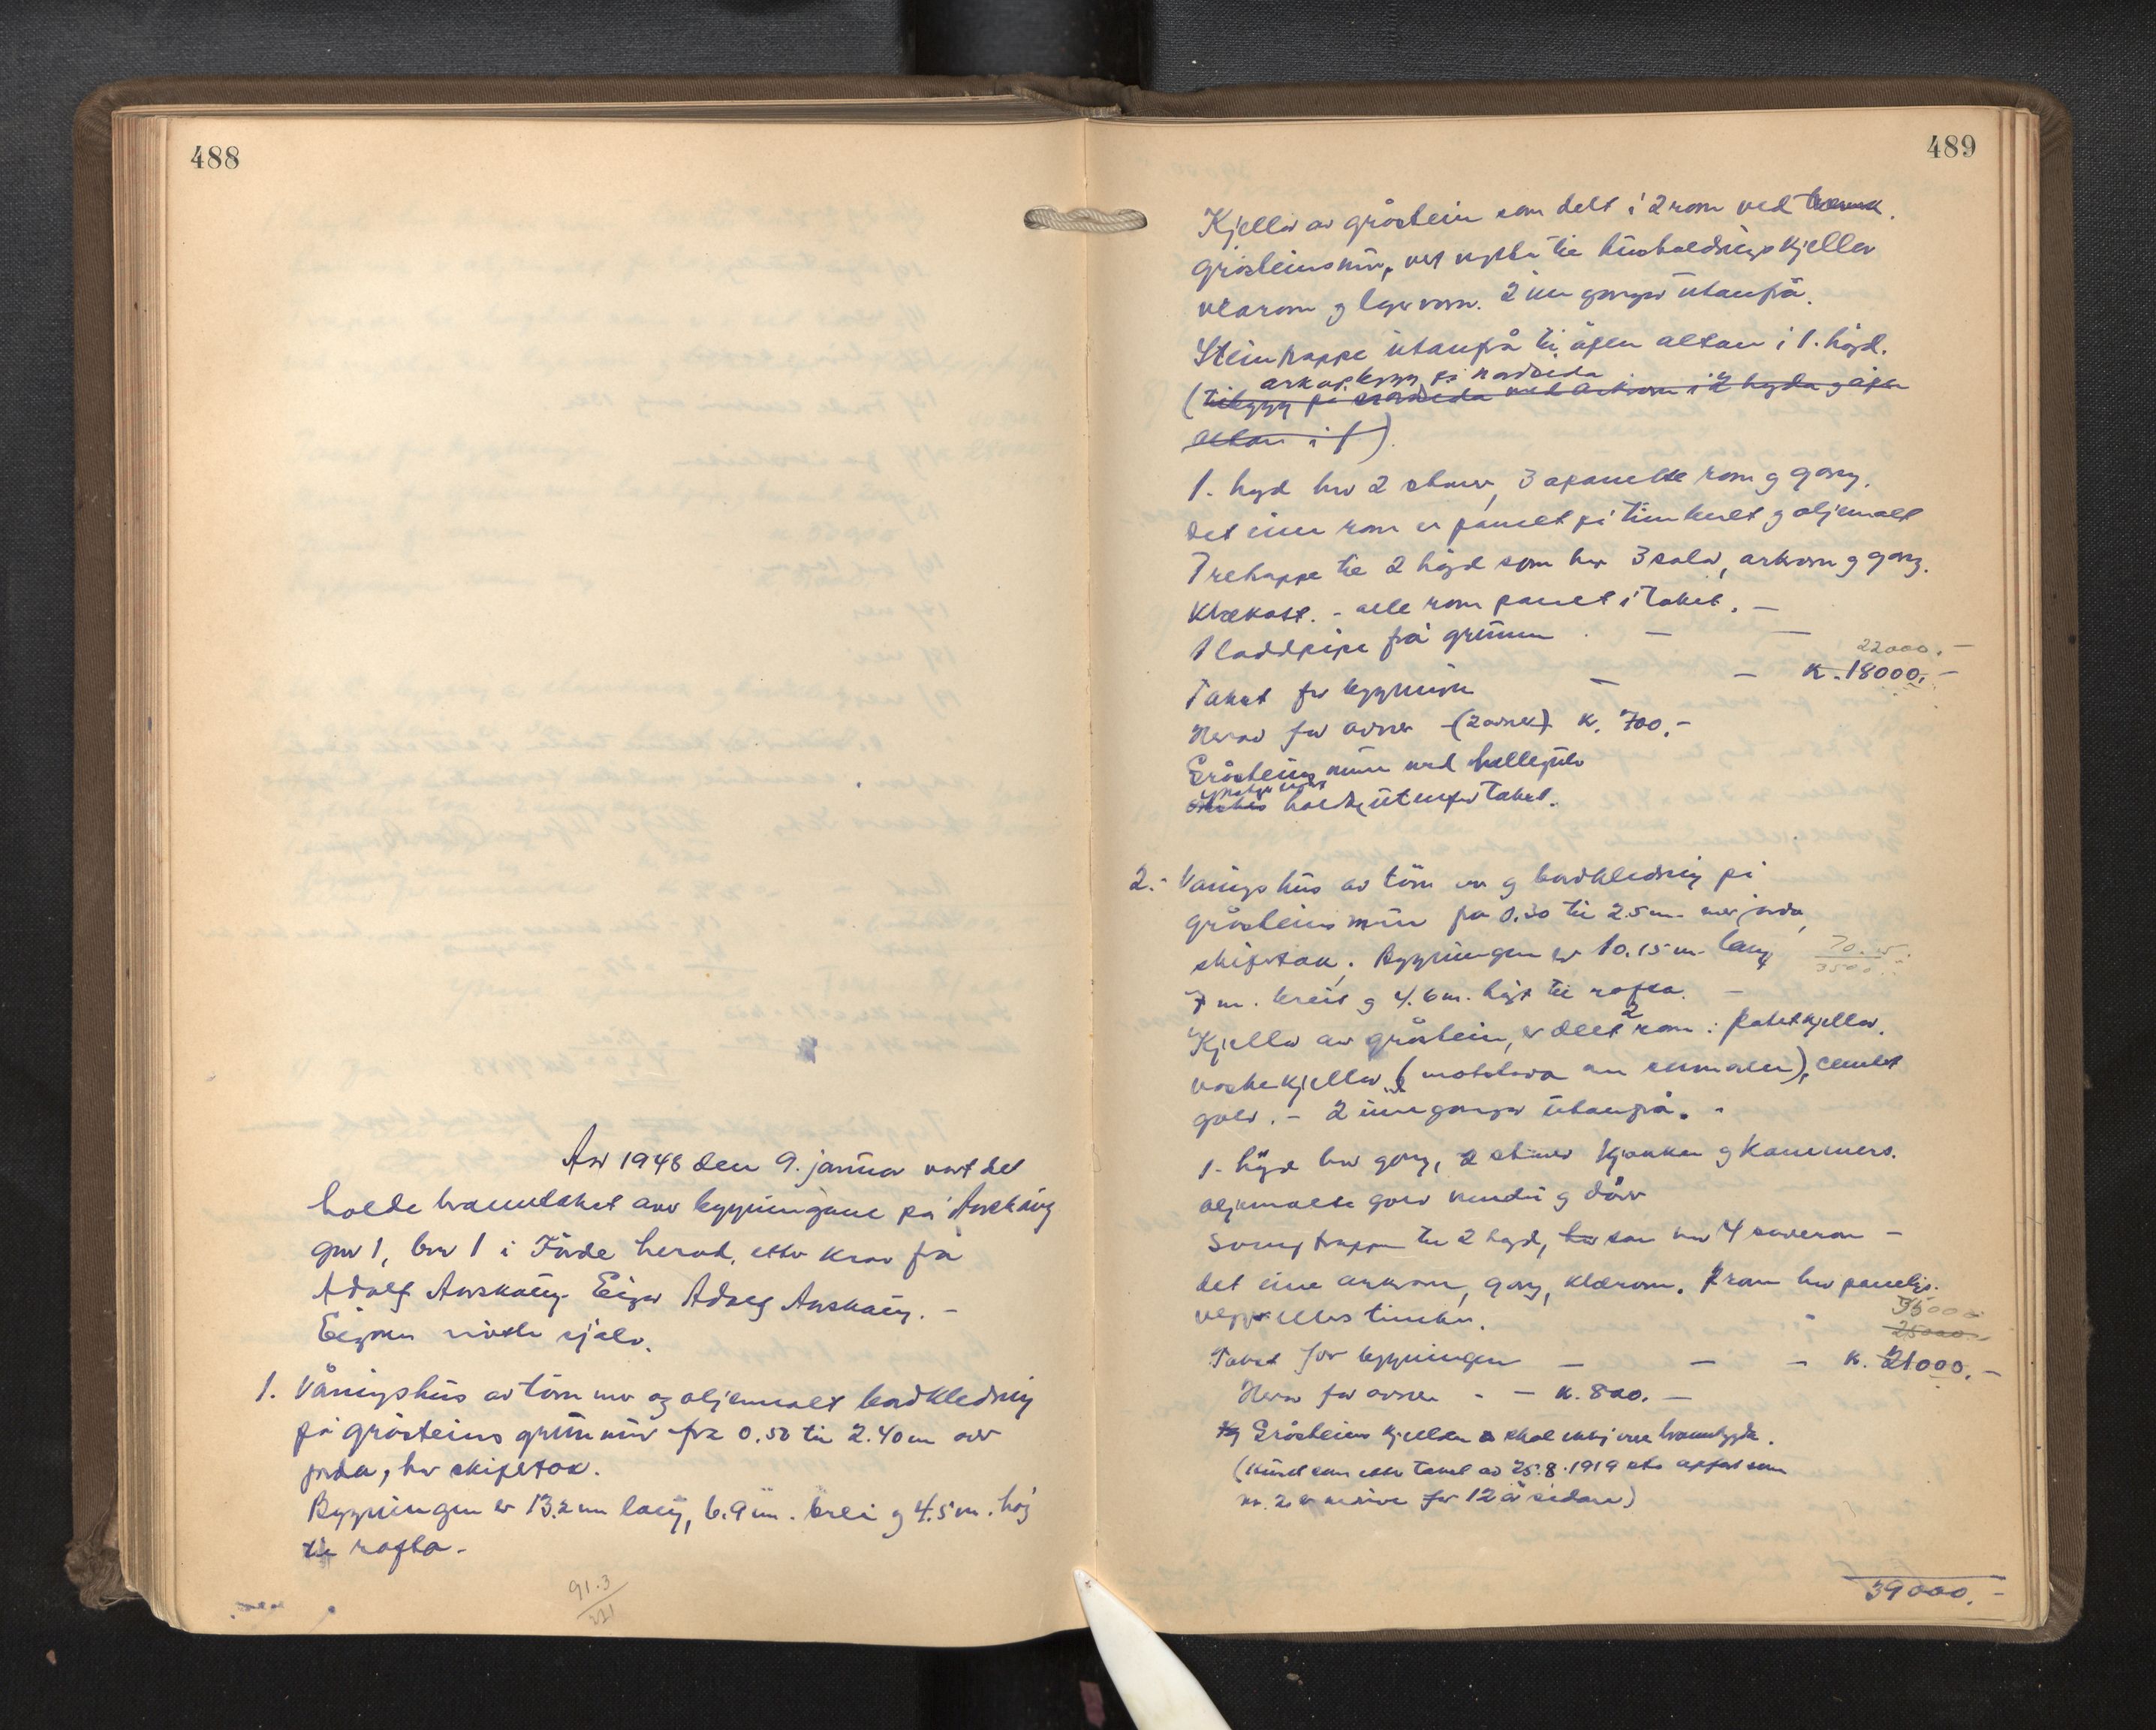 488
År 1948 den 9. januar vart det
halde branntakst over bygningane på Anskaug
gnr 1, bnr 1 i Førde herad, etter krav frå
Adolf Anskaug. Eigar Adolf Anskaug. -
Eigaren møtte sjølv.
1. Våningshus av tømmer og oljemalt bordkledning
på gråsteins grunnmur frå 0.50 til 2.40 m over
jorda, har skifertak.
Bygningen er 13.2 m lang, 6.9 m. brei og 4.5 m. høg
til rafta -
91.3
221
489
Kjellar av gråstein som delt i 2 rom ved
gråsteinsmur, vert nytta til husholdningskjellar
vedrom og lagerrom. 2 inngangar utanfrå.
Steintrappe utanfrå til åpen altan i 1. høgd.
arkoppbygg på nordsida
(tilbygg på nordsida med arkrom i 2 høgda og åpen
altan i 1).
1. høgd har 2 stover, 3 apanelte rom og gang.
det eine rom er panelt på timbret og oljemalt
Tretrappe til 2 høgd som har 3 salar, arkrom og gang.
Klekott. - alle rom panelt i taket. -
1 laddpipe frå grunnen. - -
22000. -
Takst for bygningen - - kr. 18000. -
Herav for omner (2 omner) kr. 700. -
Gråsteins mur med hellegolv
haldes utanfor takst.
2. - Våningshus av tømmer og bordkledning på
gråsteins mur frå 0.30 til 2.5 m. over jorda,
skifertak. Bygningen er 10.15 m. lang
70.
3500.
7 m. breit og 4.6 m. høgt til rafta. -
2
Kjellar av gråstein, er delt rom: potetkjellar.
vaskekjellar ( ), cement
golv. - 2 inngangar utanfrå. -
1. høgd har gang, 2 stover kjøkken og kammers.
oljemalte golv vendi og dører
Sving trapp til 2 høgd, som har 4 soverom -
det eine arkrom, gang, klærom. rom har panelte
vegger elles timber.
35000
25000
Takst for bygningen - - - kr. 21000. -
Herav for omner - - kr. 800. -
Gråsteins kjellar skal ikkje vere branntrygda.
(Huset som etter takst av 25.8.1919 er oppført som
nr. 2 er nedrive for 12 år sidan)
39000. -